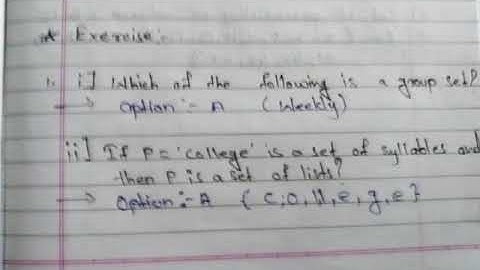 * Exercise:
1. i] Which of the following is a group set?
→ Option :- A (Weekly)
ii] If P = 'college' is a set of syllables and
then P is a set of lists?
→ Option :- A { c, o, ll, e, g, e }